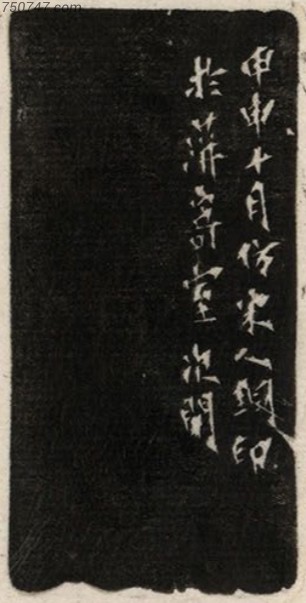 750747.com
甲申十月仿宋人銅印
於萍寄室 次閑